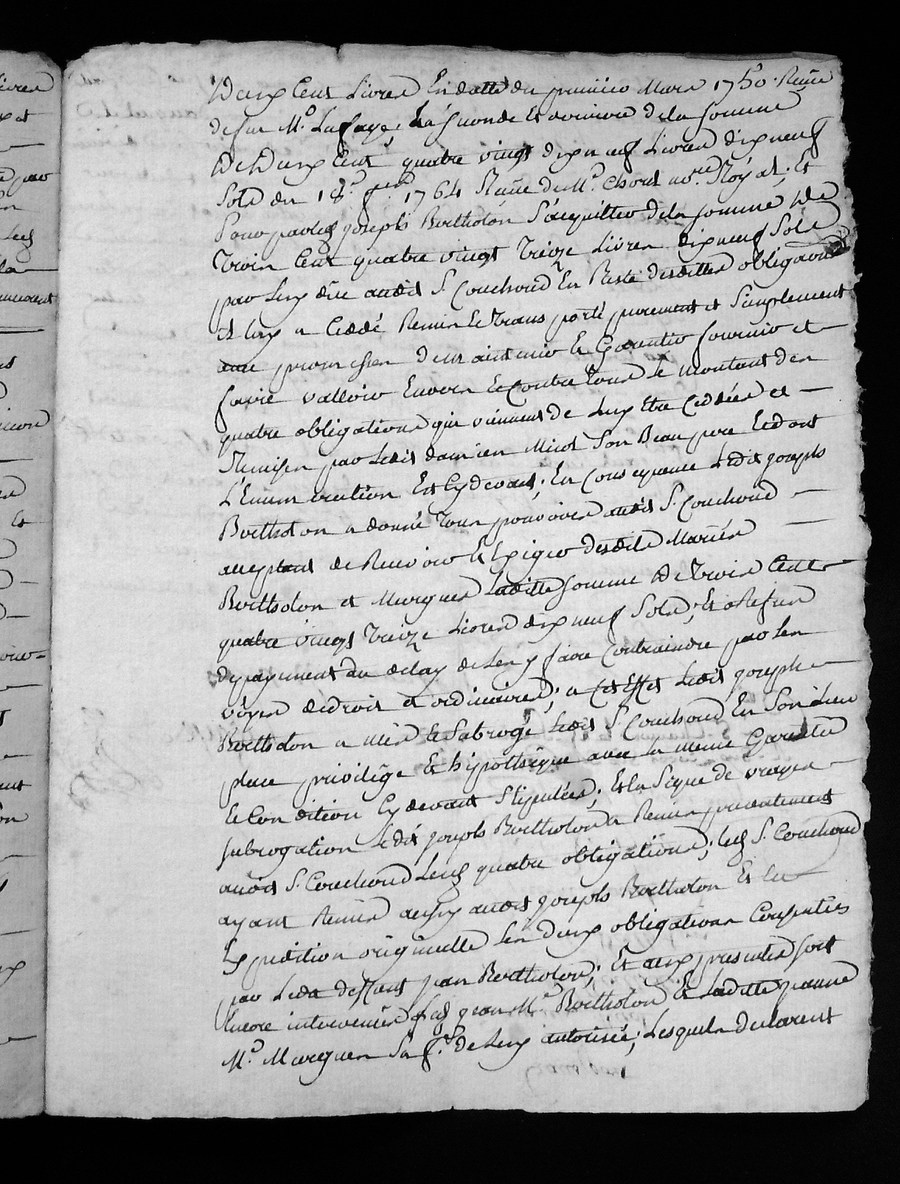 Deux Cent Livres En datte du premier Mars 1750 Reçüe
de feu Me Laffaye, la seconde et dernière de la somme
De Deux Cent quatre vingt dix neuf Livres dix neuf
Sols du 18e 1764 Reçüe de Me Chorel nore Royal; Et
Pour par led joseph Bertholon S'acquitter de la somme De
Trois Cent quatre vingt Treize Livres dix neuf Sols
par luy düe audit Sr Couchoud En Reste desdittes obligaons
il luy a Ceddé Remis Et Transporté purement et Simplement
avec promesses de maintenir Garentir fournir et
faire valloir Envers Et Contre Tous Le montant des
quatre obligations qui viennent de luy Etre Ceddées et
Remises par Ledit damien Miol Son Beau pere Et dont
L'Enumeration Est Cy devant; En Consequence Ledit joseph
Bertholon a donné Tout pouvoir audit Sr Couchoud
acceptant de Recevoir Et Exiger desdits Mariés
Bertholon et Marguen Laditte somme De Trois Cent
quatre vingt Treize Livres dix neuf Sols; Et a Refus
de payement du delay de Les y faire Contraindre par Les
voyes de droit et ordinaires; a Cet Effet Ledit joseph
Bertholon a mis Et Subrogé Ledit Sr Couchoud En Son Lieu
place privilège Et hipothèque avec la meme Garentie
Et Condition Cy devant Stipulées; Et En Signe de vraye
subrogation Ledit joseph Bertholon a Remis presentement
audit Sr Couchoud Les quatre obligations; led Sr Couchoud
ayant Remis aussy audit joseph Bertholon
Expedition originelle Les Deux obligations Consenties
par Ledt deffunt jean Bertholon; Et aux presentes sont
Encore intervenus Led jean Me Bertholon Et Laditte jeanne
Me Marguen Sa fe de Luy autorisée; Lesquels declarent